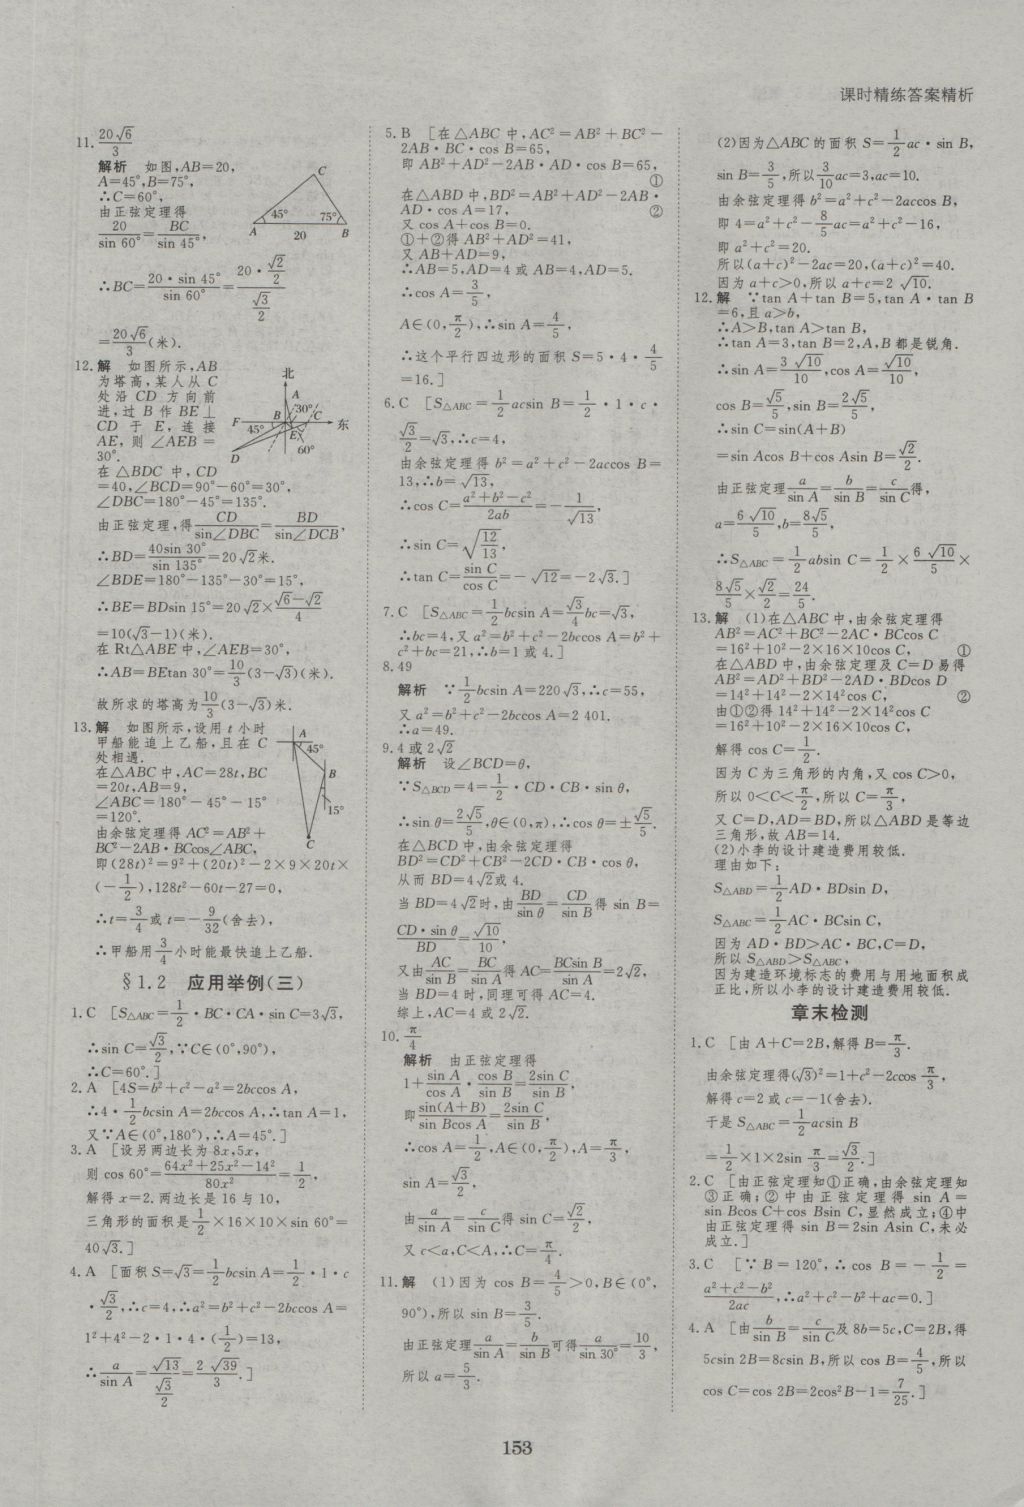 课时精练答案精析
11. 20√6/3
解析 如图,AB=20,
A=45°,B=75°,
∴C=60°,
由正弦定理得
20/sin 60°=BC/sin 45°,
C
45° 75°
A 20 B
∴BC=20·sin 45°/sin 60°=(20·√2/2)/(√3/2)
=20√6/3(米).
12.解 如图所示,AB
为塔高,某人从 C
处沿 CD 方向前
进,过 B 作 BE⊥
CD 于 E,连接
AE,则∠AEB=
30°.
北
A
30°
F B C 东
45° E
60°
D
在△BDC 中,CD
=40,∠BCD=90°-60°=30°,
∠DBC=180°-45°=135°.
由正弦定理,得CD/sin∠DBC=BD/sin∠DCB,
∴BD=40sin 30°/sin 135°=20√2米.
∠BDE=180°-135°-30°=15°,
∴BE=BDsin 15°=20√2×(√6-√2)/4
=10(√3-1)(米).
在 Rt△ABE 中,∠AEB=30°,
∴AB=BEtan 30°=10/3(3-√3)(米).
故所求的塔高为10/3(3-√3)米.
13.解 如图所示,设用 t 小时
甲船能追上乙船,且在 C
处相遇.
在△ABC 中,AC=28t,BC
=20t,AB=9,
∠ABC=180°-45°-15°
=120°.
A
45°
B
15°
C
由余弦定理得 AC²=AB²+
BC²-2AB·BCcos∠ABC,
即(28t)²=9²+(20t)²-2×9×20t×
(-1/2),128t²-60t-27=0,
∴t=3/4或 t=-9/32(舍去),
∴甲船用3/4小时能最快追上乙船.
§1.2 应用举例(三)
1.C [S△ABC=1/2·BC·CA·sin C=3√3,
∴sin C=√3/2,∵C∈(0°,90°),
∴C=60°.]
2.A [4S=b²+c²-a²=2bccos A,
∴4·1/2bcsin A=2bccos A,∴tan A=1,
又∵A∈(0°,180°),∴A=45°.]
3.A [设另两边长为 8x,5x,
则 cos 60°=(64x²+25x²-14²)/80x²=1/2,
解得 x=2.两边长是 16 与 10,
三角形的面积是1/2×16×10×sin 60°=
40√3.]
4.A [面积 S=√3=1/2bcsin A=1/2·1·c
·√3/2,∴c=4,∴a²=b²+c²-2bccos A=
1²+4²-2·1·4·(1/2)=13,
∴a/sin A=√13/(√3/2)=2√39/3.]
5.B [在△ABC 中,AC²=AB²+BC²-
2AB·BC·cos B=65,
即 AB²+AD²-2AB·AD·cos B=65,
①
在△ABD 中,BD²=AB²+AD²-2AB·
AD·cos A=17, ②
又 cos A+cos B=0.
①+②得 AB²+AD²=41,
又 AB+AD=9,
∴AB=5,AD=4 或 AB=4,AD=5.
∴cos A=3/5,
A∈(0,π/2),∴sin A=4/5,
∴这个平行四边形的面积 S=5·4·4/5
=16.]
6.C [S△ABC=1/2acsin B=1/2·1·c·
√3/2=√3,∴c=4,
由余弦定理得 b²=a²+c²-2accos B=
13,∴b=√13,
∴cos C=(a²+b²-c²)/2ab=-1/√13,
∴sin C=√(12/13),
∴tan C=sin C/cos C=-√12=-2√3.]
7.C [S△ABC=1/2bcsin A=√3/4bc=√3,
∴bc=4,又 a²=b²+c²-2bccos A=b²+
c²+bc=21,∴b=1 或 4.]
8.49
解析 ∵1/2bcsin A=220√3,∴c=55,
又 a²=b²+c²-2bccos A=2 401.
∴a=49.
9.4 或 2√2
解析 设∠BCD=θ,
∵S△BCD=4=1/2·CD·CB·sin θ,
∴sin θ=2√5/5,θ∈(0,π),∴cos θ=±√5/5.
在△BCD 中,由余弦定理得
BD²=CD²+CB²-2CD·CB·cos θ,
从而 BD=4√2或 4.
当 BD=4√2时,由BD/sin θ=CD/sin B得 sin B=
CD·sin θ/BD=√10/10,
又由AC/sin B=BC/sin A得 AC=BCsin B/sin A=2√2,
当 BD=4 时,同理可得 AC=4.
综上,AC=4 或 2√2.
10. π/4
解析 由正弦定理得
1+sin A/cos A·cos B/sin B=2sin C/sin B,
即sin(A+B)/sin Bcos A=2sin C/sin B,
∴cos A=1/2,A∈(0,π/2),A=π/3,
sin A=√3/2,
由a/sin A=c/sin C得 sin C=√2/2,
又 c<a,C<A,∴C=π/4.
11.解 (1)因为 cos B=4/5>0,B∈(0°,
90°),所以 sin B=3/5.
由正弦定理a/sin A=b/sin B可得a/sin30°=10/3,
所以 a=5/3.
(2)因为△ABC 的面积 S=1/2ac·sin B,
sin B=3/5,所以3/10ac=3,ac=10.
由余弦定理得 b²=a²+c²-2accos B,
即 4=a²+c²-8/5ac=a²+c²-16,
即 a²+c²=20.
所以(a+c)²-2ac=20,(a+c)²=40.
因为 a+c>0,所以 a+c=2√10.
12.解 ∵tan A+tan B=5,tan A·tan B
=6,且 a>b,
∴A>B,tan A>tan B.
∴tan A=3,tan B=2,A,B 都是锐角.
∴sin A=3√10/10,cos A=√10/10,
cos B=√5/5,sin B=2√5/5,
∴sin C=sin(A+B)
=sin Acos B+cos Asin B=√2/2.
由正弦定理a/sin A=b/sin B=c/sin C得,
a=6√10/5,b=8√5/5,
∴S△ABC=1/2absin C=1/2×6√10/5×
8√5/5×√2/2=24/5.
13.解 (1)在△ABC 中,由余弦定理得
AB²=AC²+BC²-2AC·BCcos C
=16²+10²-2×16×10cos C, ①
在△ABD 中,由余弦定理及 C=D 易得
AB²=AD²+BD²-2AD·BDcos D
=14²+14²-2×14²cos C, ②
由①②得 14²+14²-2×14²cos C
=16²+10²-2×16×10cos C,
解得 cos C=1/2.
因为 C 为三角形的内角,又 cos C>0,
所以 0<C<π/2,所以 C=π/3,
又 C=D,AD=BD,所以△ABD 是等边
三角形,故 AB=14.
(2)小李的设计建造费用较低.
理由如下:
S△ABD=1/2AD·BDsin D,
S△ABC=1/2AC·BCsin C,
因为 AD·BD>AC·BC,C=D,
所以 S△ABD>S△ABC,
因为建造环境标志的费用与用地面积成
正比,所以小李的设计建造费用较低.
章末检测
1.C [由 A+C=2B,解得 B=π/3.
由余弦定理得(√3)²=1+c²-2ccos π/3,
解得 c=2 或 c=-1(舍去).
于是 S△ABC=1/2acsin B
=1/2×1×2sin π/3=√3/2.]
2.C [由正弦定理知①正确,由余弦定理知
③正确;②中由正弦定理得 sin A=
sin Bcos C+cos Bsin C,显然成立;④中
由正弦定理得 sin B=2sin Asin C,未必
成立.]
3.C [∵B=120°,∴cos B=-1/2=
(a²+c²-b²)/2ac,∴a²+c²-b²+ac=0.]
4.A [由b/sin B=c/sin C及 8b=5c,C=2B,得
5csin 2B=8csin B,所以 cos B=4/5,所以
cos C=cos 2B=2cos²B-1=7/25.]
153